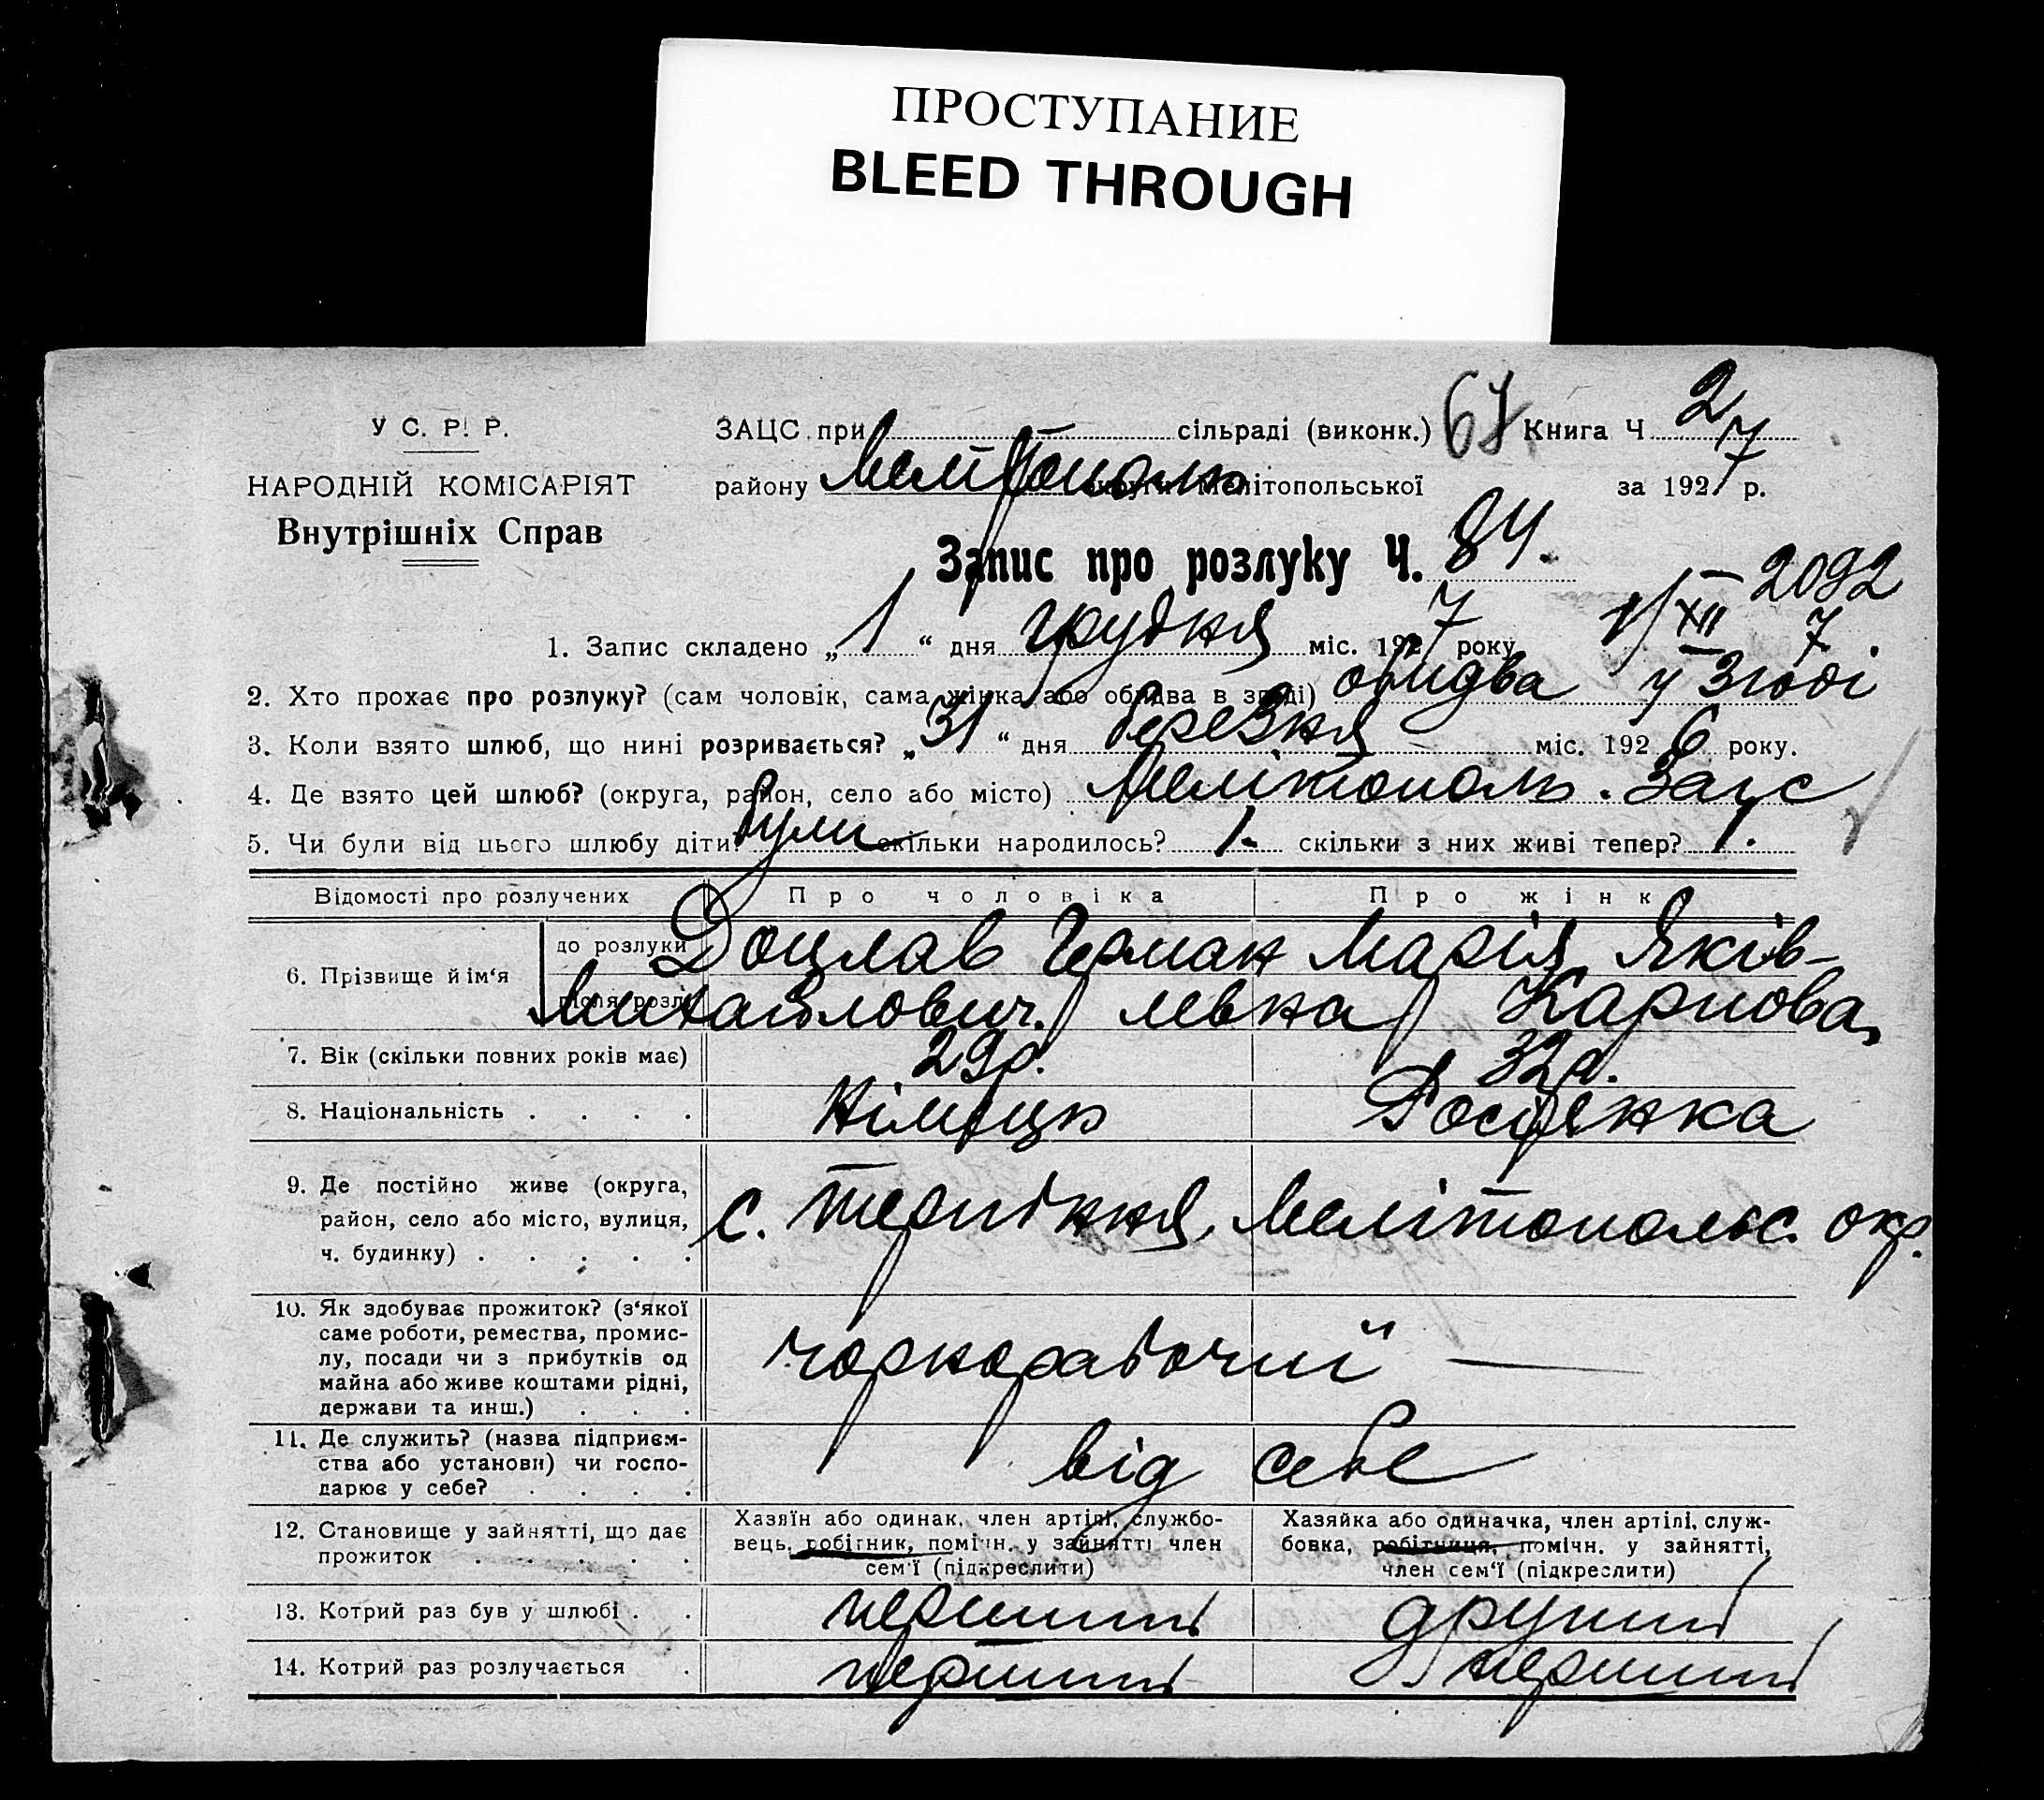 ПРОСТУПАНИЕ
BLEED THROUGH
У С. Р. Р.
НАРОДНІЙ КОМІСАРІЯТ
Внутрішніх Справ
ЗАЦС при сільраді (виконк.) 67 Книга Ч 2
району Мелітополь округи Мелітопольської за 1927 р.
Запис про розлуку Ч. 84.
2092
1/XII 7
1. Запис складено „ 1 “ дня грудня міс. 1927 року
2. Хто прохає про розлуку? (сам чоловік, сама жінка або обидва в згоді) обидва у згоді
3. Коли взято шлюб, що нині розривається? „ 31 “ дня березня міс. 1926 року.
4. Де взято цей шлюб? (округа, район, село або місто) Мелітополь. Зацс
5. Чи були від цього шлюбу діти? були скільки народилось? 1. скільки з них живі тепер? 1.
Відомості про розлучених Про чоловіка Про жінк
6. Прізвище й ім'я до розлуки Доцлав Герман Марія Яків-
після розл Михайлович. левна Карпова,
7. Вік (скільки повних років має) 29р. 32р.
8. Національність . . . . Німець Росіянка
9. Де постійно живе (округа,
район, село або місто, вулиця,
ч. будинку) . . . . .
с. Терпіння, Мелітопольс. окр.
10. Як здобуває прожиток? (з'якої
саме роботи, ремества, промис-
лу, посади чи з прибутків од
майна або живе коштами рідні,
держави та инш.) . . .
чорнорабочий —
11. Де служить? (назва підприєм-
ства або установи) чи госпо-
дарює у себе? . . . .
від себе
12. Становище у зайнятті, що дає
прожиток . . . . .
Хазяїн або одинак, член артілі, службо-
вець, робітник, помічн. у зайнятті член
сем'ї (підкреслити)
Хазяйка або одиначка, член артілі, служ-
бовка, робітниця, помічн. у зайнятті,
член сем'ї (підкреслити)
13. Котрий раз був у шлюбі . . перший другий
14. Котрий раз розлучається . перший перший